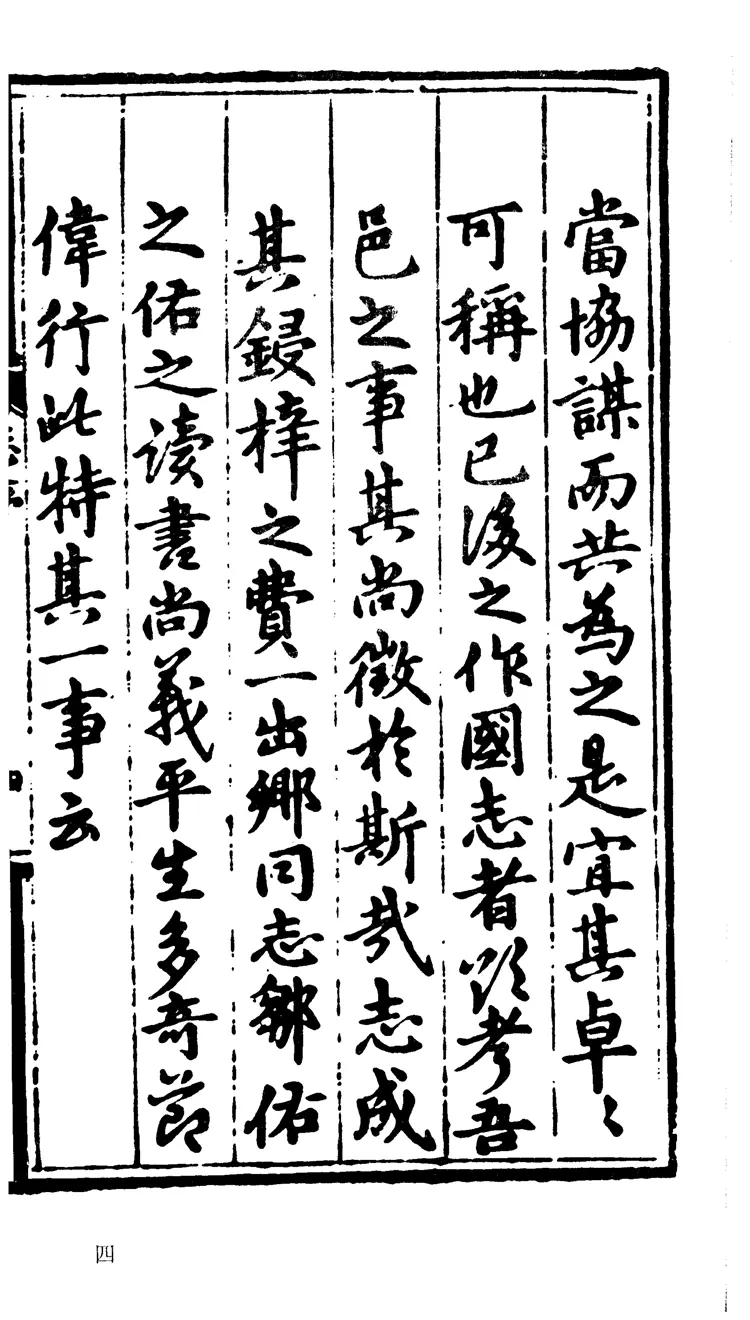 當協謀而共為之是宜其卓〻
可稱也已後之作國志者欲考吾
邑之事其尚徵於斯哉志成
其鋟梓之費一出鄉同志鄒佑
之佑之读書尚義平生多奇節
偉行此特其一事云
四